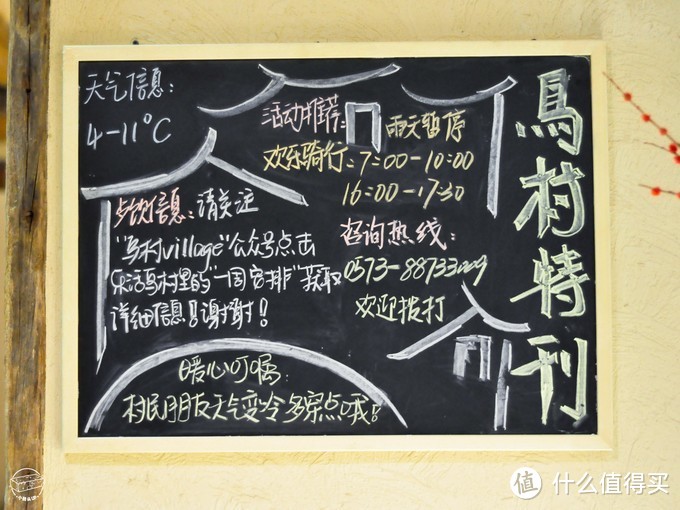 天气信息:
4-11℃
活动推荐:
雨天暂停
欢乐骑行:7:00-10:00
16:00-17:30
咨询热线:
0573-88733009
欢迎拨打
乌村特刊
活动信息:请关注
"乌村village"公众号点击
乐活乌村里的"一周安排"获取
详细信息!谢谢!
暖心叮嘱:
村民朋友天气变冷多穿点哦!
值 什么值得买